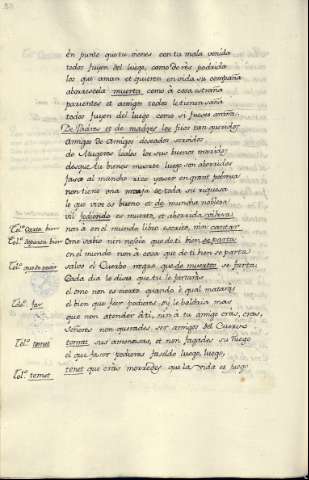 en punto que tu vienes con tu mala venida
todos fuyen del luego, como de res podrida
los que aman et quieren en vida su compaña
aborrescela muerta como à cosa estraña
parientes et amigos todos le tienen saña
todos fuyen del luego como si fuese araña
De Padres et de madres los fijos tan queridos
Amigos de Amigos deseados servidos
de Mugeres leales los sus buenos maridos
desque tu bienes muerte luego son aborridos
fases al mucho rico yacer en grant pobresa
non tiene una meaja de toda su riquesa
lo que vive es bueno et de mucha noblesa
vil fediendo es muerto, et aborrida villesa
Tol.º
non à en el mundo libro escrito, nin cartar
Tol.º
Ome sabio nin nesçio que de ti bien esparta
en el mundo non à cosa que de ti bien se parta
Tol.º
salvo el Cuerbo negro que de muertos se farta
Cada dia le dises que tu le fartarás
el ome non es cierto quando è qual matarás
Tol.º
el bien que fer podieres oy le baldria mas
que non atender à ti, nin à tu amigo cras, cras,
Señores non querades ser amigos del Cuervo
Tol.º temet
temet sus amenasas, et non fagades su ruego
el que faser podieres fasedlo luego, luego,
Tol.º temet
tenet que cras morredes que la vida es juego